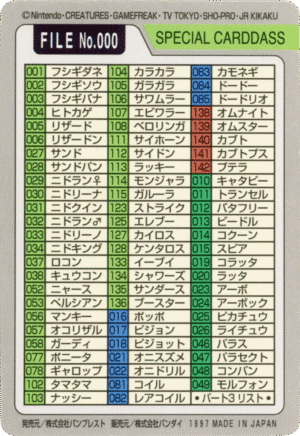 ©Nintendo·CREATURES·GAMEFREAK·TV TOKYO·SHO-PRO·JR KIKAKU
FILE No.000
SPECIAL CARDDASS
001 フシギダネ 104 カラカラ 083 カモネギ
002 フシギソウ 105 ガラガラ 084 ドードー
003 フシギバナ 106 サワムラー 085 ドードリオ
004 ヒトカゲ 107 エビワラー 138 オムナイト
005 リザード 108 ベロリンガ 139 オムスター
006 リザードン 111 サイホーン 140 カブト
027 サンド 112 サイドン 141 カブトプス
028 サンドパン 113 ラッキー 142 プテラ
029 ニドラン♀ 114 モンジャラ 010 キャタピー
030 ニドリーナ 115 ガルーラ 011 トランセル
031 ニドクイン 123 ストライク 012 バタフリー
032 ニドラン♂ 125 エレブー 013 ビードル
033 ニドリーノ 127 カイロス 014 コクーン
034 ニドキング 128 ケンタロス 015 スピアー
037 ロコン 133 イーブイ 019 コラッタ
038 キュウコン 134 シャワーズ 020 ラッタ
052 ニャース 135 サンダース 023 アーボ
053 ペルシアン 136 ブースター 024 アーボック
056 マンキー 016 ポッポ 025 ピカチュウ
057 オコリザル 017 ピジョン 026 ライチュウ
058 ガーディ 018 ピジョット 046 パラス
077 ポニータ 021 オニスズメ 047 パラセクト
078 ギャロップ 022 オニドリル 048 コンパン
102 タマタマ 081 コイル 049 モルフォン
103 ナッシー 082 レアコイル ・パート3リスト・
発売元/株式会社バンプレスト 販売元/株式会社バンダイ 1997 MADE IN JAPAN